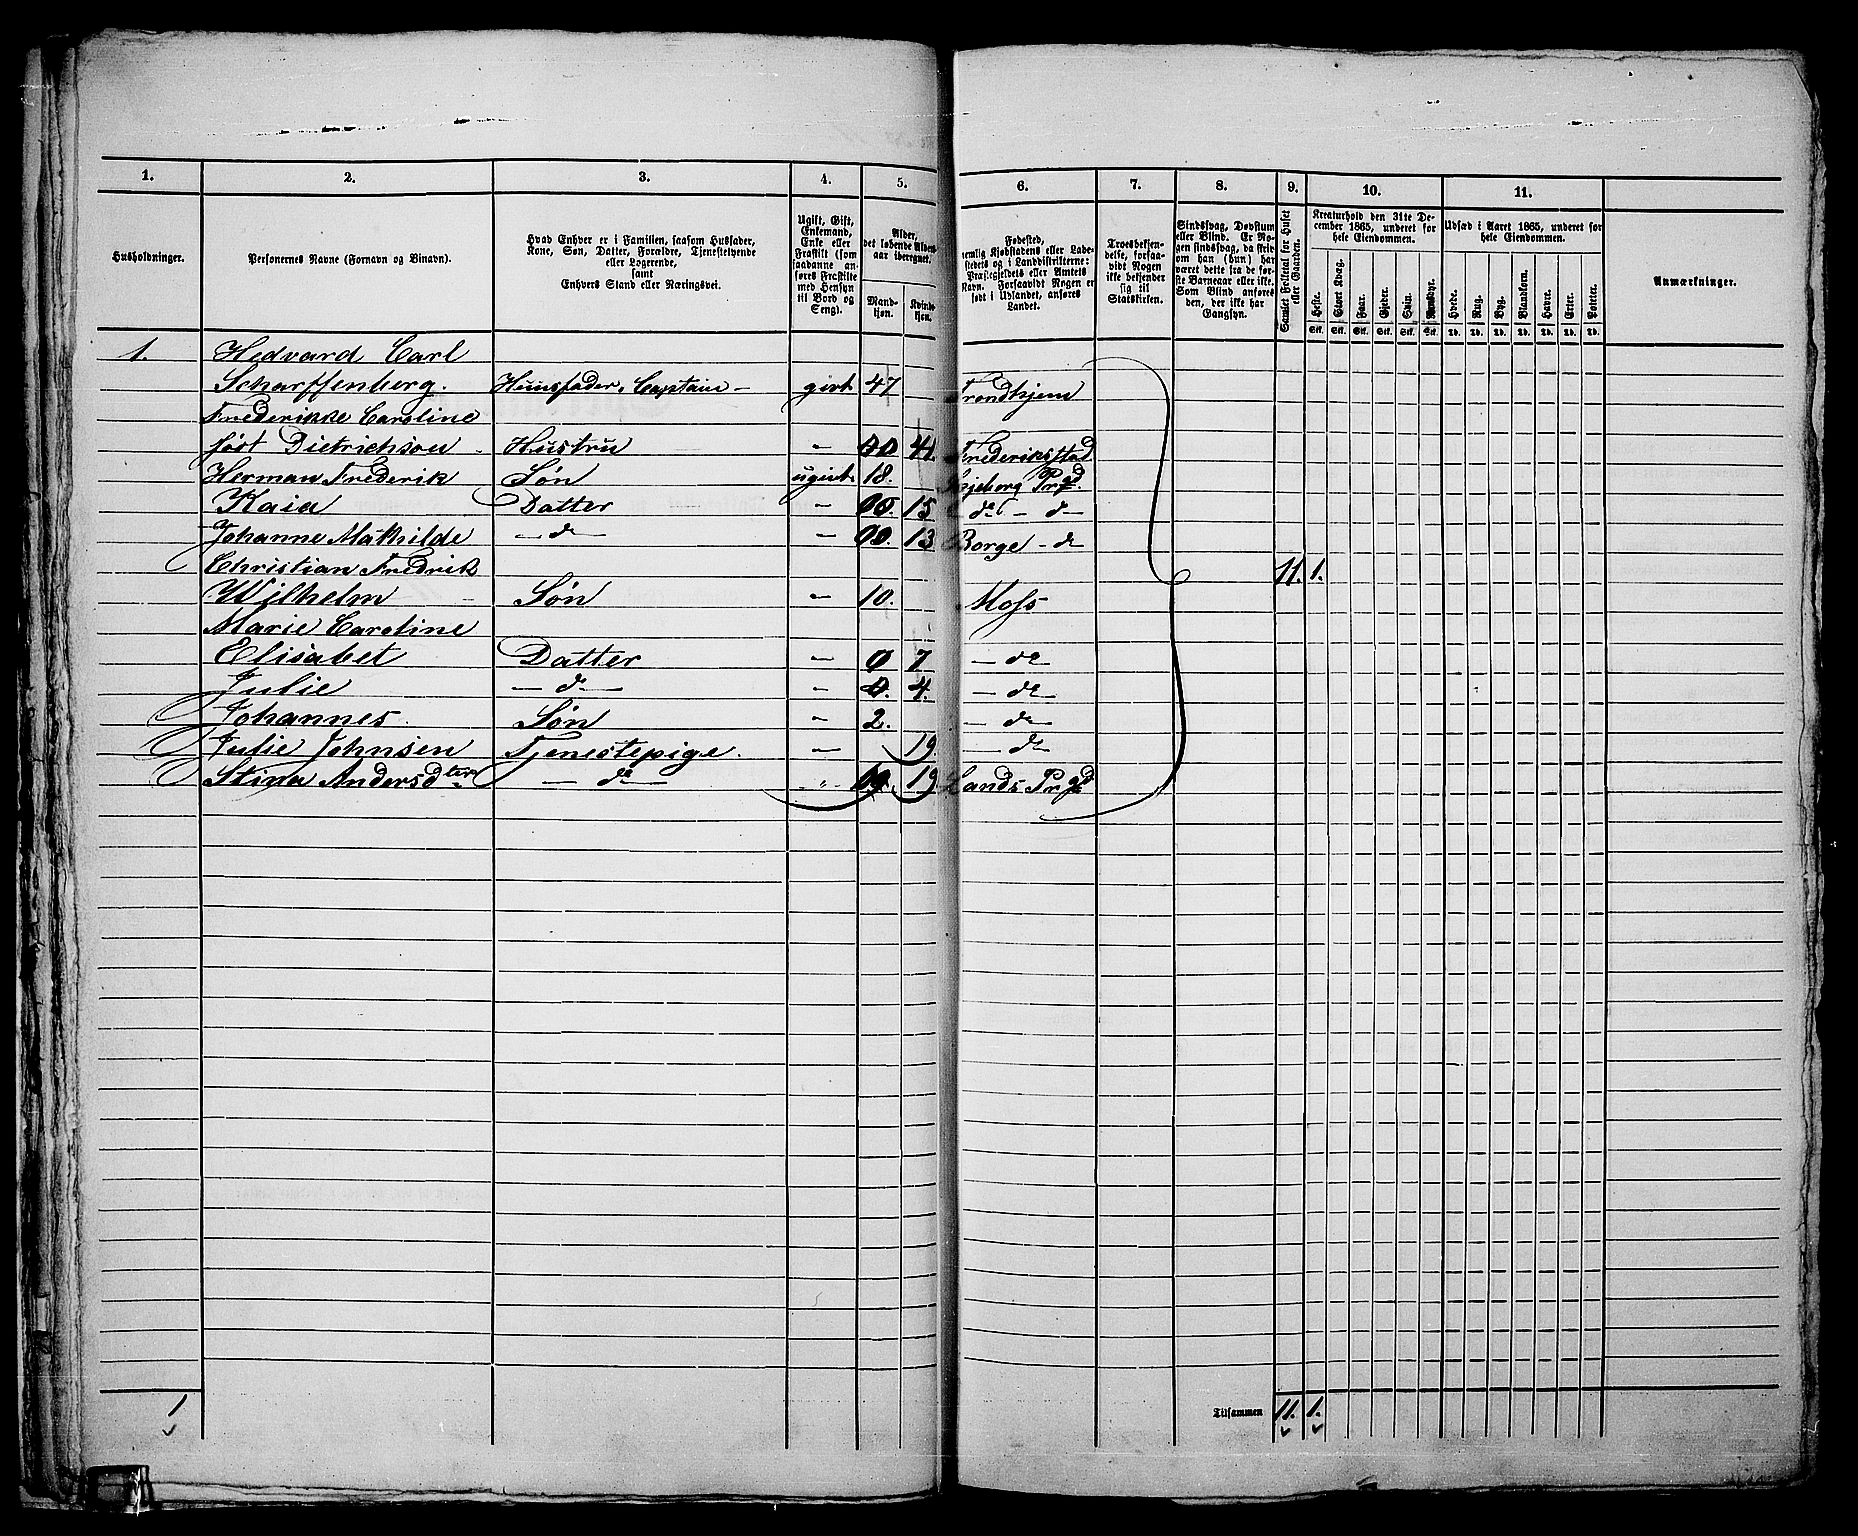 1. 2. 3. 4. 5. 6. 7. 8. 9. 10. 11.
Husholdninger.
Personernes Navne (Fornavn og Binavn).
Hvad Enhver er i Familien, saasom Husfader,
Kone, Søn, Datter, Forældre, Tjenestetyende
eller Logerende,
samt
Enhvers Stand eller Næringsvei.
Ugift, Gift,
Enkemand,
Enke eller
Fraskilt (som
saadanne an-
føres Fraskilte
med Hensyn
til Bord og
Seng).
Alder,
det løbende Alders-
aar iberegnet.
Mand-
kjøn.
Kvinde-
kjøn.
Fødested,
nemlig Kjøbstadens eller Lade-
stedets og i Landdistrikterne:
Præstegjeldets eller Amtets
Navn. Forsaavidt Nogen er
født i Udlandet, anføres
Landet.
Troesbekjen-
delse, forsaa-
vidt Nogen
ikke bekjender
sig til
Statskirken.
Sindssvag, Døvstum
eller Blind. Er No-
gen sindssvag, da hvid
om han (hun) har
været dette fra de før-
ste Barneaar eller ikke.
Som Blind anføres
den, der ikke har
Gangsyn.
Samlet Folketal for Huset
eller Gaarden.
Kreaturhold den 31te De-
cember 1865, underet for
hele Eiendommen.
Heste. Stort Kvæg. Faar. Gjeder. Svin. Rensdyr.
Stk. Stk. Stk. Stk. Stk. Stk.
Udsæd i Aaret 1865, underet for
hele Eiendommen.
Hvede. Rug. Byg. Blandkorn. Havre. Erter. Poteter.
Td. Td. Td. Td. Td. Td. Td.
Anmærkninger.
1. Hedvard Carl
Scharffenberg. Huusfader, Captain – givt 47 Trondhjem
Frederikke Caroline
føst Dietrichson Hustru " 0 41. Frederikstad
Herman Frederik Søn ugivt 18. Prgd.
Kaia Datter " 0. 15 do – do
Johanne Mathilde – do " 0. 13 Borge – do
Christian Fredrik 11. 1.
Wilhelm Søn " 10. Moss
Marie Caroline
Elisabet Datter " 0 7 – do
Julie – do – " 0. 4. – do
Johannes Søn " 2. – do
Julie Johnsen Tjenestepige. " 19. – do
Stina Andersdter – do – " 19 Lands Prgd
1 Tilsammen 11. 1.